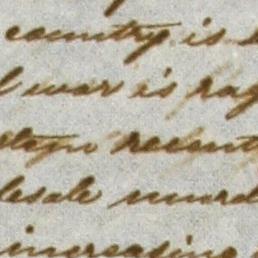 country is
war is rag
recent
lesale murd
increasing